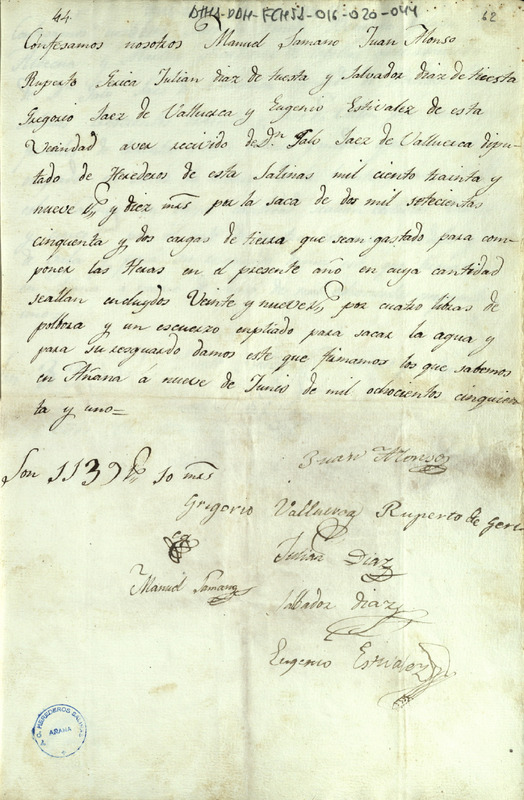 44.
ATHA-DDH-FCHSA-016-020-044
62
Confesamos nosotros Manuel Samano Juan Alonso
Ruperto Gerica Julian diaz de tuesta y Salvador diaz de tuesta
Gregorio Saez de Valluerca y Eugenio Estivalez de esta
Vecindad aver recivido de Dn Pablo Saez de Valluerca dipu-
tado de Herederos de esta Salinas mil ciento trainta y
nueve rs y diez mrs por la saca de dos mil setecientas
cinquenta y dos cargas de tierra que sean gastado para com-
poner las Heras en el presente año en cuya cantidad
seallan encluydos Veinte y nueve rs por cuatro libras de
polbora y un escuerzo enpliado para sacar la agua y
para su resguardo damos este que firmamos los que sabemos
en Añana á nueve de Junio de mil ochocientos cinquien
ta y uno=
Son 1139 rs 10 mrs
Juan Alonso
Gregorio Valluerca Ruperto de Geri
Julian Diaz
Manuel Samano
Salbador diaz
Eugenio Estivalez
C. HEREDEROS SALINAS
AÑANA